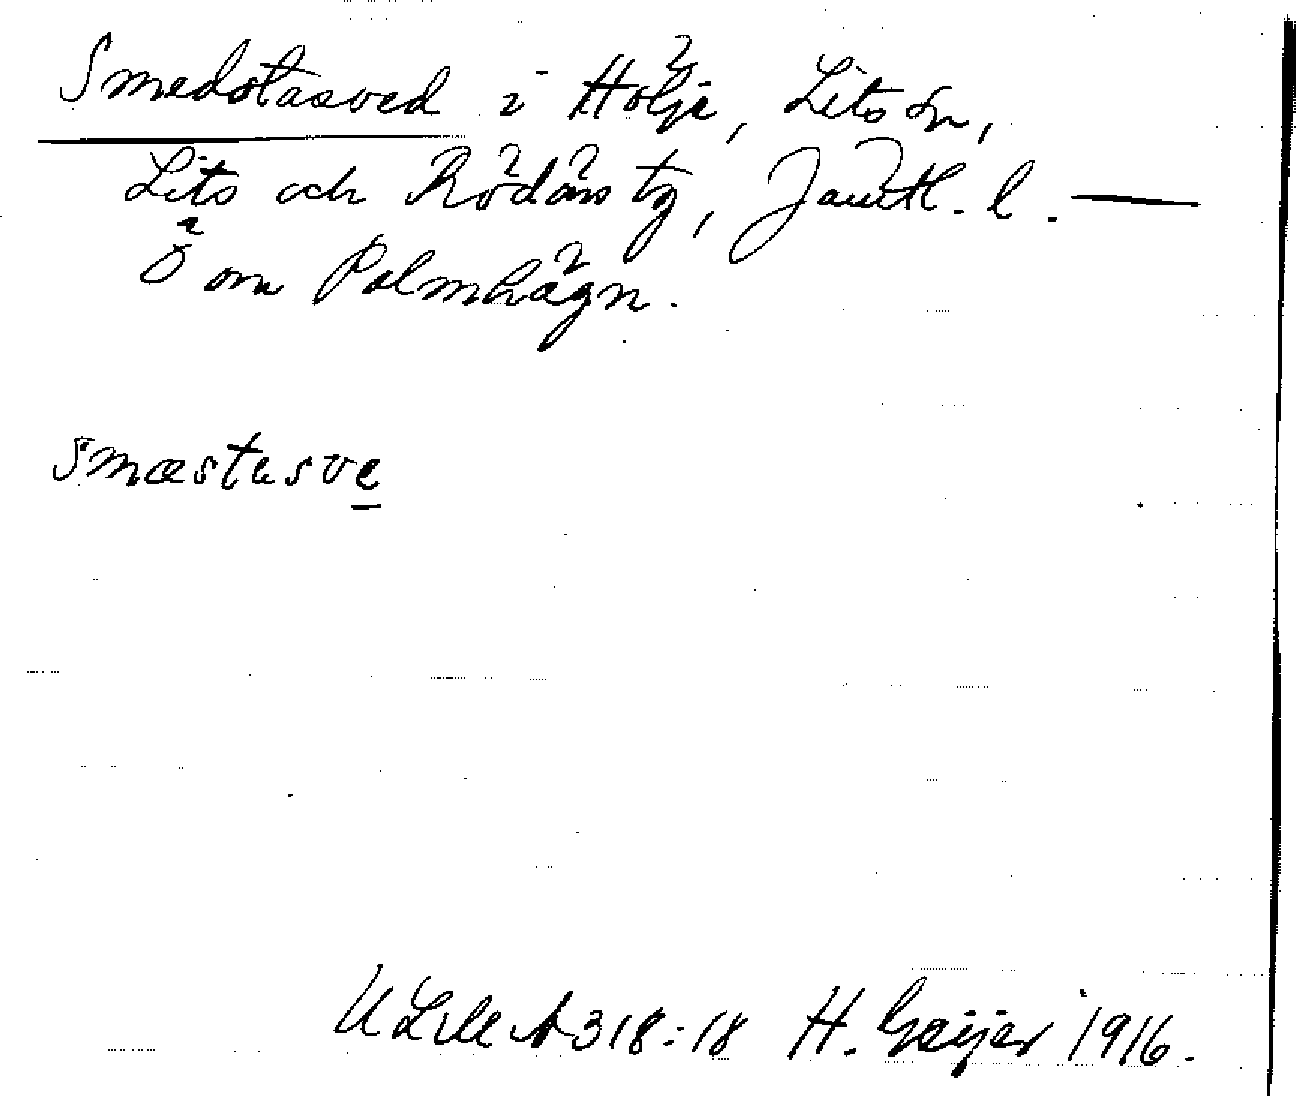 Smedstasved i Hölje, Lits sn,
Lits och Rödöns tg, Jämtl. l. —
Ö om Polmhögn.
smæstasve
ULMA 318:18 H. Geijer 1916.